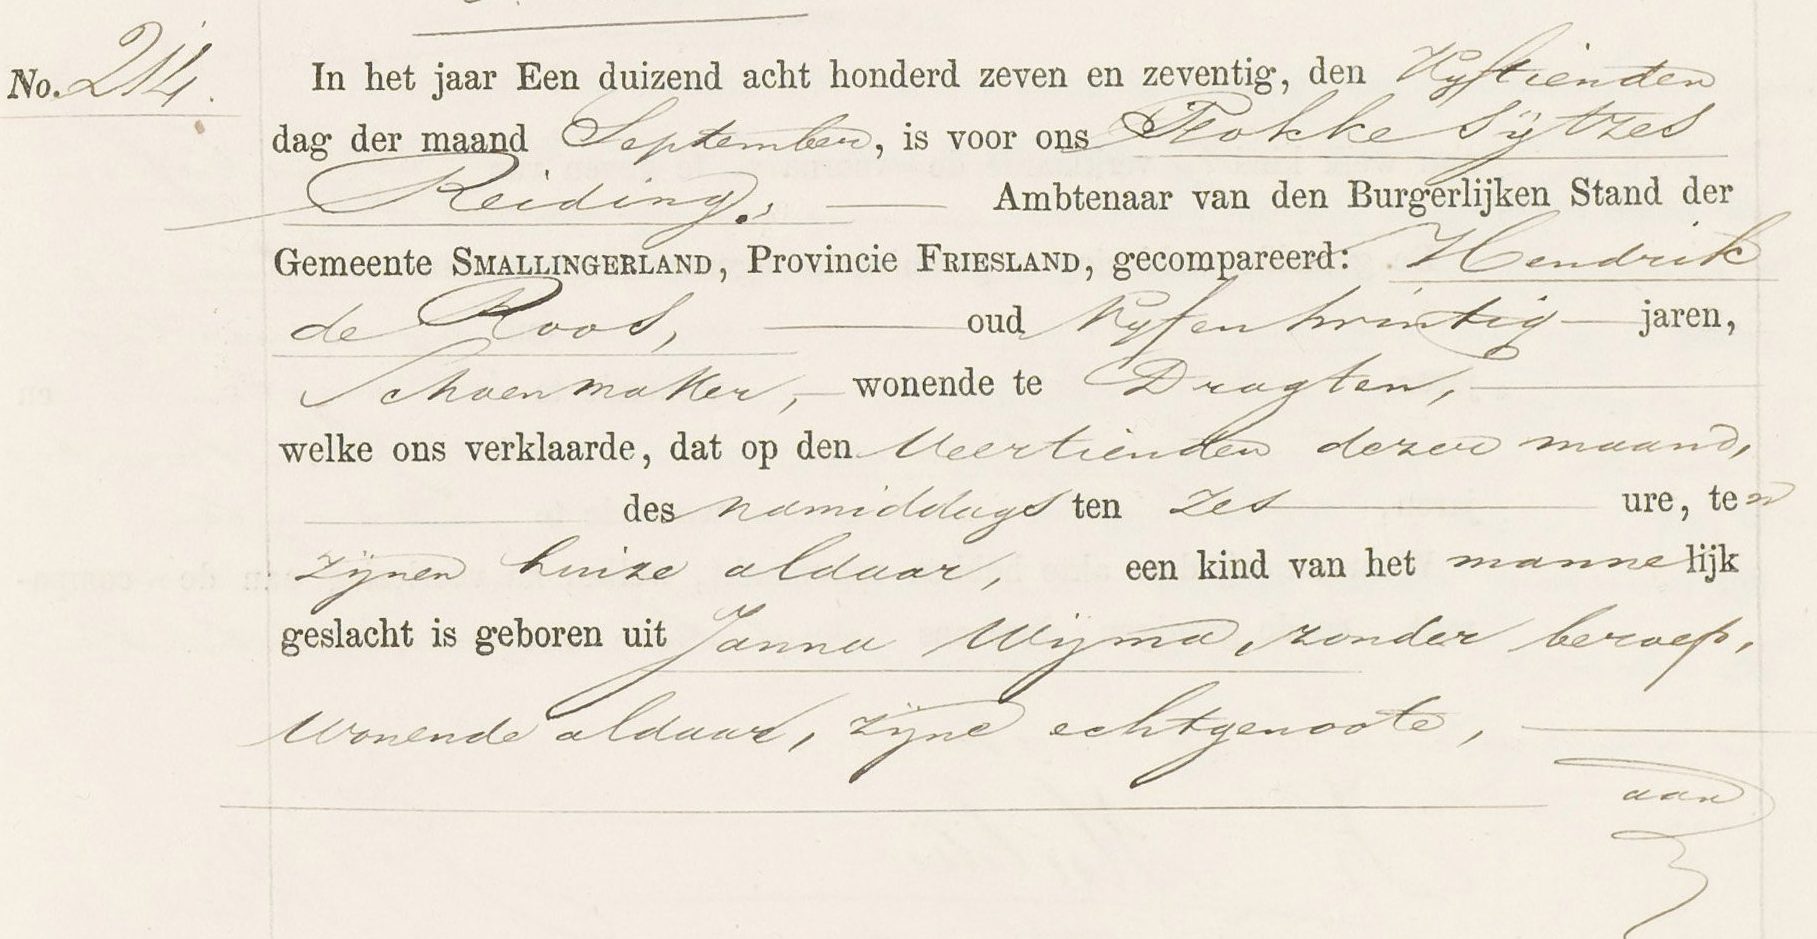 No. 214. In het jaar Een duizend acht honderd zeven en zeventig, den Vyftienden
dag der maand September, is voor ons Fokke Sÿtzes
Reiding, Ambtenaar van den Burgerlijken Stand der
Gemeente SMALLINGERLAND, Provincie FRIESLAND, gecompareerd: Hendrik
de Roos, oud Vyfentwintig jaren,
Schoenmaker, wonende te Dragten,
welke ons verklaarde, dat op den Veertienden dezer maand,
des namiddags ten zes ure, ten
zijnen huize aldaar, een kind van het mannelijk
geslacht is geboren uit Janna Wijma, zonder beroep,
wonende aldaar, zijne echtgenoote,
aan